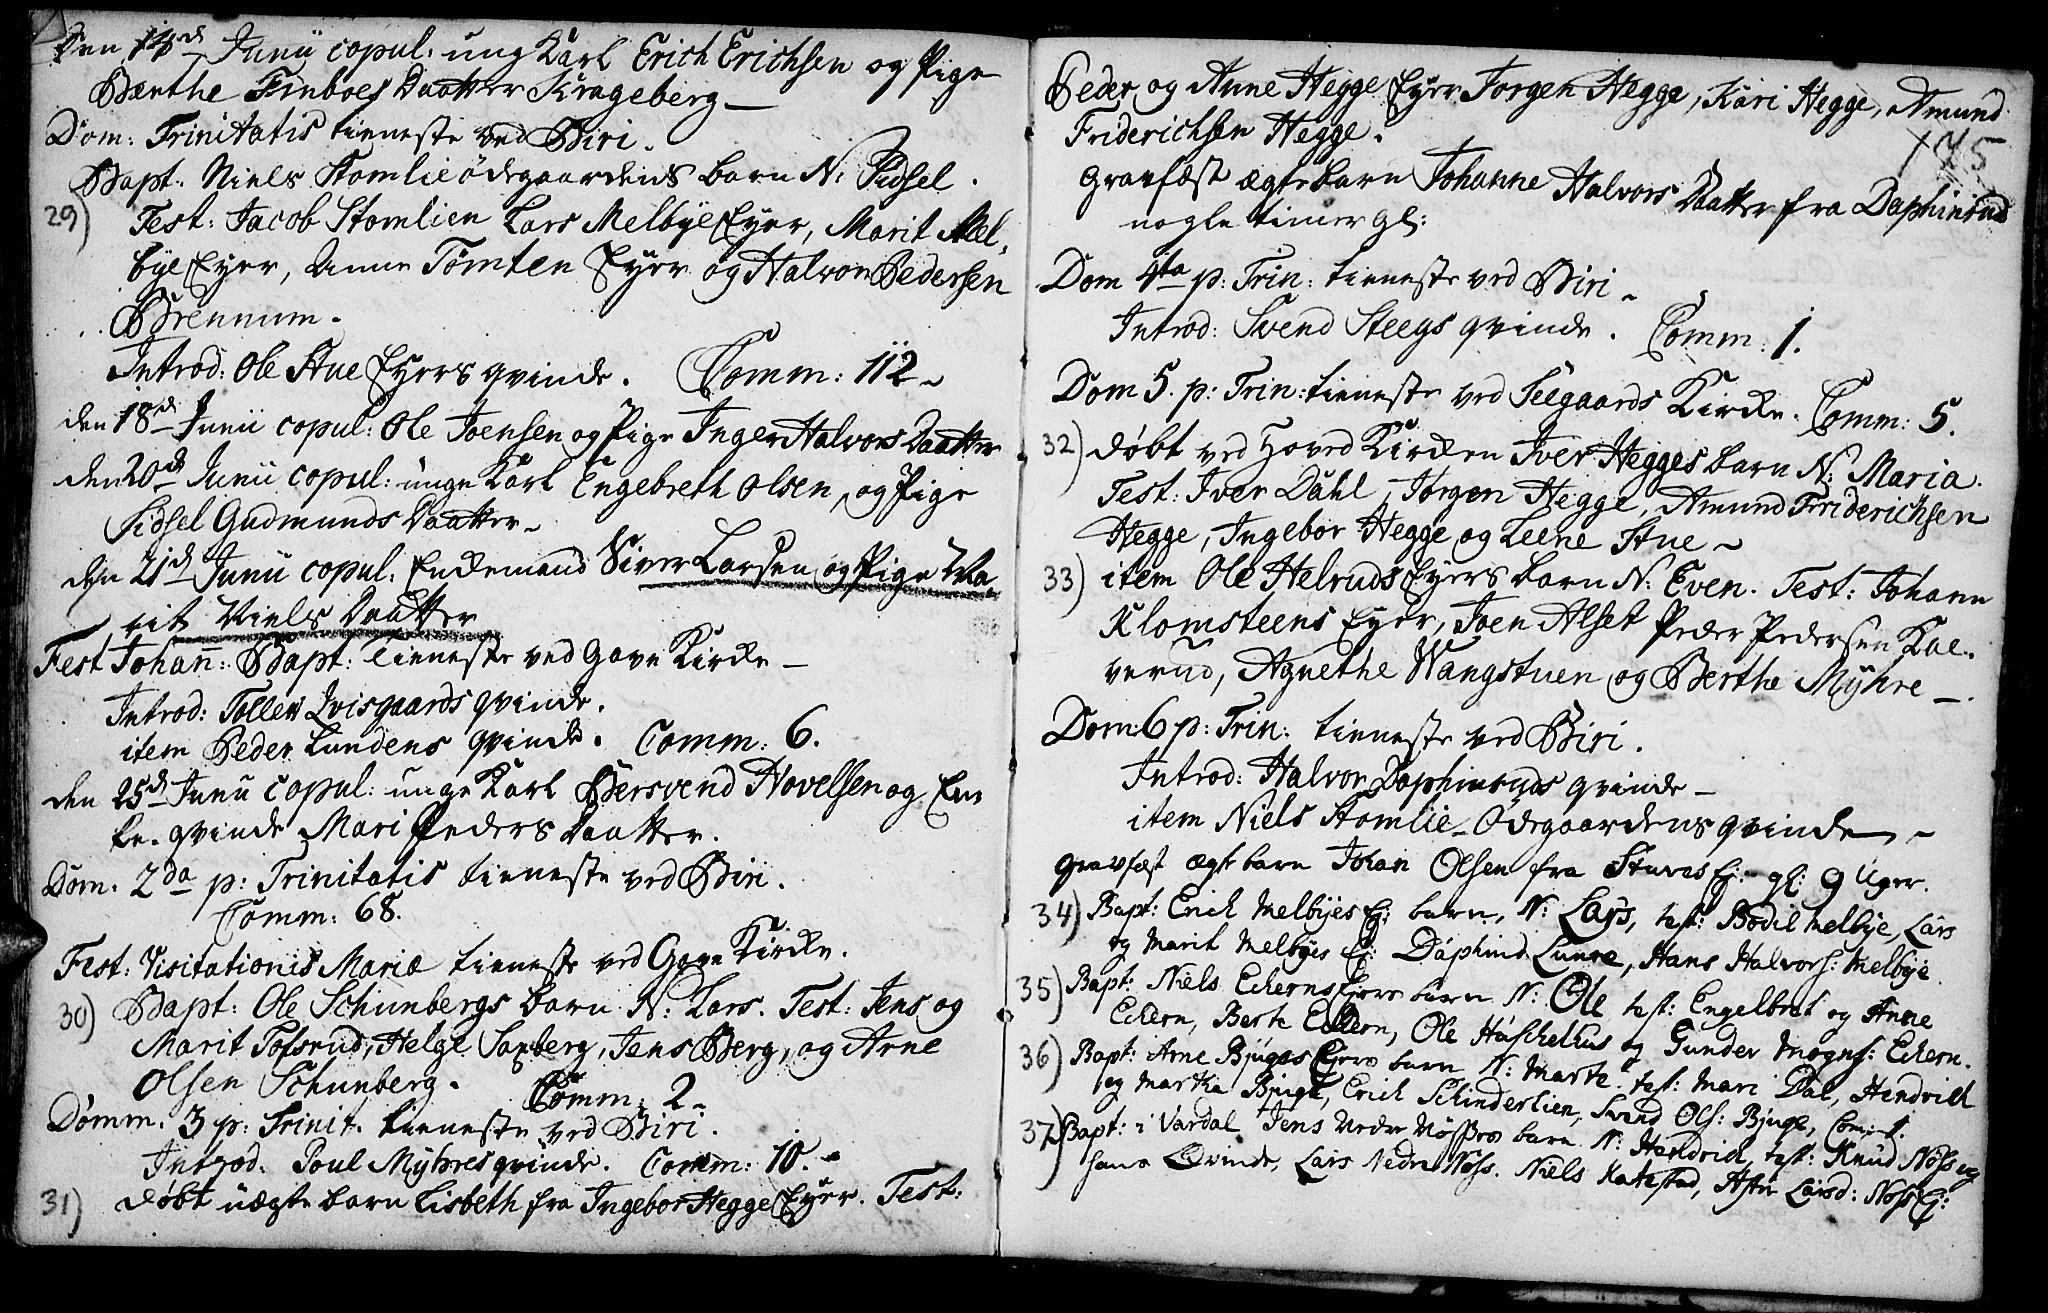 Den 14d Junii copul: ung Karl Erich Erichsen og Pige
Berthe Finboes Daatter Krageberg
Dom: Trinitatis tieneste ved Biri.
Bapt. Niels Stomlieødegaardens barn N: Sidsel.
29) Test: Jacob Stomlien Lars Melbye Eyer, Marit Mel-
bye Eyer, Anne Tømten Eyer og Halvor Pedersen
Brennum.
Introd: Ole Stue Eyers qvinde. Comm: 112
den 18d Junii copul: Ole Joensen og Pige Inger Halvors Daatter
den 20d Junii copul: unge Karl Engebreth Olsen og Pige
Sidsel Gudmunds Daatter
den 21d Junii copul: Enkemand Siver Larsen og Pige Ma-
rit Niels Daatter
Fest Johan: Bapt: Tieneste ved Gave Kirke
Introd: Tollev Qvisgaards qvinde.
item Peder Lundens qvinde. Comm: 6.
den 25d Junii copul: unge Karl Bersvend Hovelsen og En-
ke. qvinde Mari Peders Daatter.
Dom. 2da p: Trinitatis tieneste ved Biri.
Comm: 68.
Fest: Visitationis Mariæ tieneste ved Gave Kirke.
30) Bapt: Ole Schunbergs barn N: Lars. Test: Jens og
Marit Tofsrud, Helge Saxberg, Jens Berg, og Arne
Olsen Schunberg. Comm: 2
Domm. 3 p: Trinit: tieneste ved Biri.
Introd. Poul Myhres qvinde. Comm: 10.
31) døbt uægte barn Lisbeth fra Ingebor Hegge Eyer. Test:
Peder og Anne Hegge Eyer Jørgen Hegge, Kari Hegge, Amund
Friderichsen Hegge.
175
gravfæst ægte barn Johanne Halvors Daatter fra Daphinrud
nogle timer gl:
Dom 4ta p: Trin: tieneste ved Biri
Introd: Svend Steegs qvinde. Comm: 1.
Dom 5. p: Trin: tieneste ved Seegaards Kirke. Comm: 5.
32) døbt ved Hoved Kirken Iver Hegges barn N: Maria.
Test: Iver Dahl, Jørgen Hegge, Amund Friderichsen
Hegge, Ingebor Hegge og Leene Stue
33) item Ole Helruds Eyers barn N: Even. Test: Johann
Klomsteens Eyer, Joen Alset Peder Pedersen Kal-
verud, Agnethe Wangstuen og Berthe Myhre
Dom: 6 p: Trin: tieneste ved Biri.
Introd: Halvor Daphinruds qvinde
item Niels Stomlie-Ødegaardens qvinde
gravfæst ægte barn Johan Olsen fra Stuves Ej: gl: 9 Uger.
34) Bapt: Erich Melbyes Ej: barn, N: Lars, test: Bodil Melbye, Lars
og Marit Melbyes Ej: Daphind Lunne, Hans Halvors: Melbye.
35) Bapt: Niels Eckerns Ejers barn N: Ole test: Engelbret og Anne
Eckern, Berte Eckern, Ole Huschelhus og Gunder Mogns: Eckern.
36) Bapt: Arne Bjuges Ejers barn N: Marte. test: Mari Dal, Hendrich
og Martha Bjuge, Erich Schinderlien, Svend Ols: Bjuge, Com: 1.
37) Bapt: i Vardal Jens Neder Nøss Bro barn N: Hendrich, test: Knud Nøss og
hans Qvinde, Lars Nedre Nøss. Niels Katestad, Larsd: Nøss Ej: